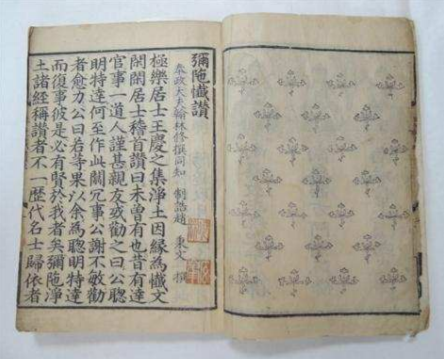 彌陁懺讃
奉政大夫翰林修撰同知 制誥趙 秉文 撰
極樂居士王慶之集淨土因緣為懺文
閑閑居士稽首讃曰未曾有也昔有達
官事一道人謹甚親友或勸之曰公聦
明特達何至作此闒冗事公謝不敏勸
者愈力公曰若等果以余為聦明特達
而復事彼是必有賢於我者矣彌陁淨
土諸經稱讃者不一歷代名士歸依者